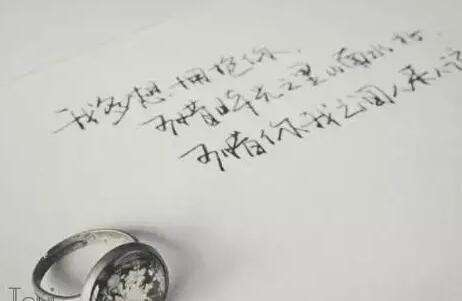 我多想拥抱你，
可惜时光之里山南水北.
可惜你我之间人来人